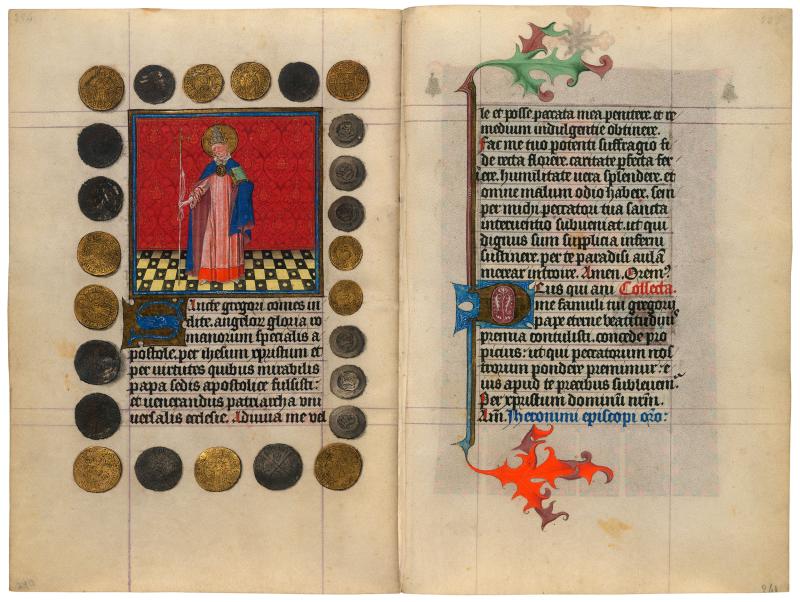 Ancte gregori comes in
clite. angeloꝝ gloria ro
manorum specialis a
postole. per ihesum xpristum et
per virtutes quibus mirabilis
papa sedis apostolice fulsisti:
et venerandus patriarcha vni
uersalis ecclesie. Adiuua me vel
le et posse peccata mea penitere. et re
medium indulgentie obtinere.
Fac me tuo potenti suffragio fi
de recta florere. caritate pfecta fer
uere. humilitate uera splendere. et
omne malum odio habere. sem
per michi peccatori tua sancta
interuentio subueniat. ut qui
dignus sum supplicia inferni
sustinere. per te paradisi aulā
merear introire. Amen. Orem?
Deus qui ani Collecta.
me famuli tui gregorij
pape eterne beatitudinis
premia contulisti. concede pro
picius: ut qui peccatorum nos
trorum pondere premimur: e
ius apud te precibus subleuem?
Per xpristum dominū nrm.
Am̄. Iheronimi episcopi orō: